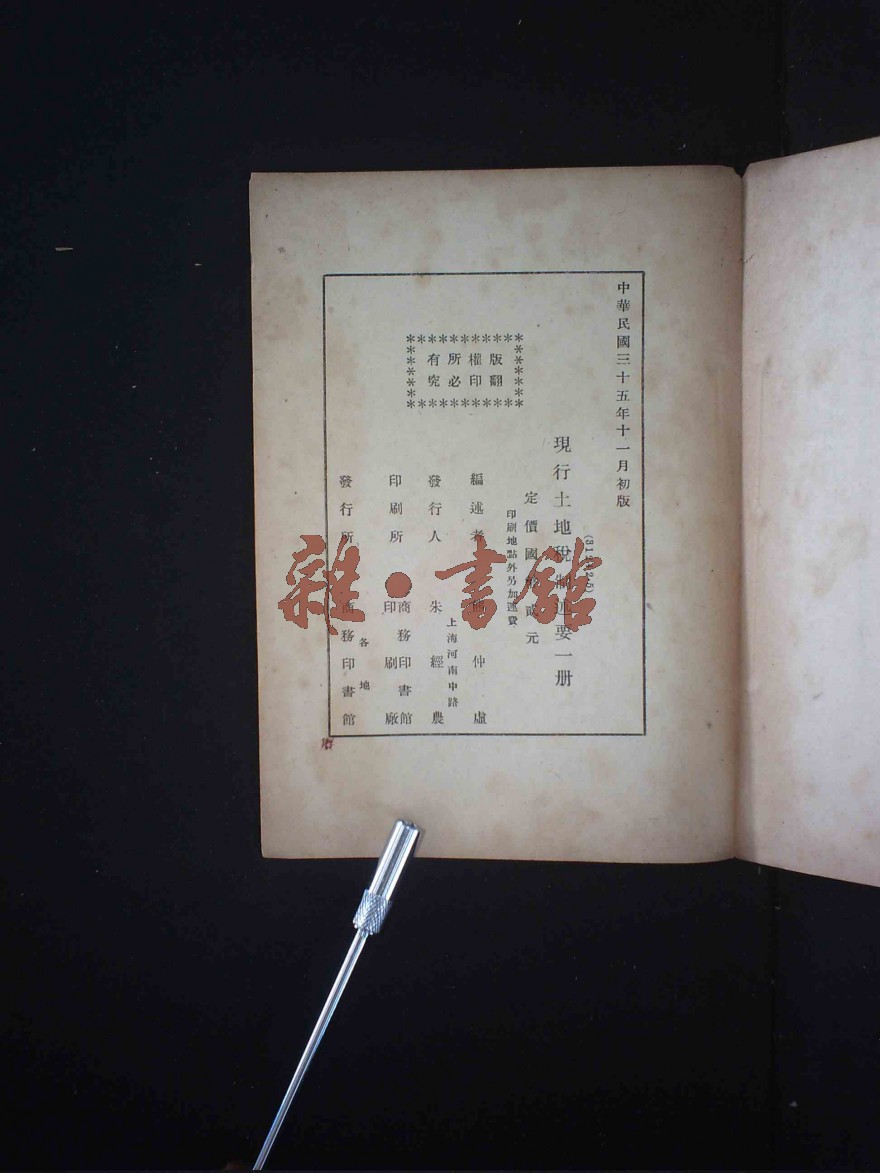 中華民國三十五年十一月初版
現行土地稅制述要一册
定價國幣元
印刷地點外另加運費
版權所有
翻印必究
編述者 仲虛
上海河南中路
發行人 朱經農
印刷所 商務印書館
印刷廠
各地
發行所 商務印書館
雜·書館